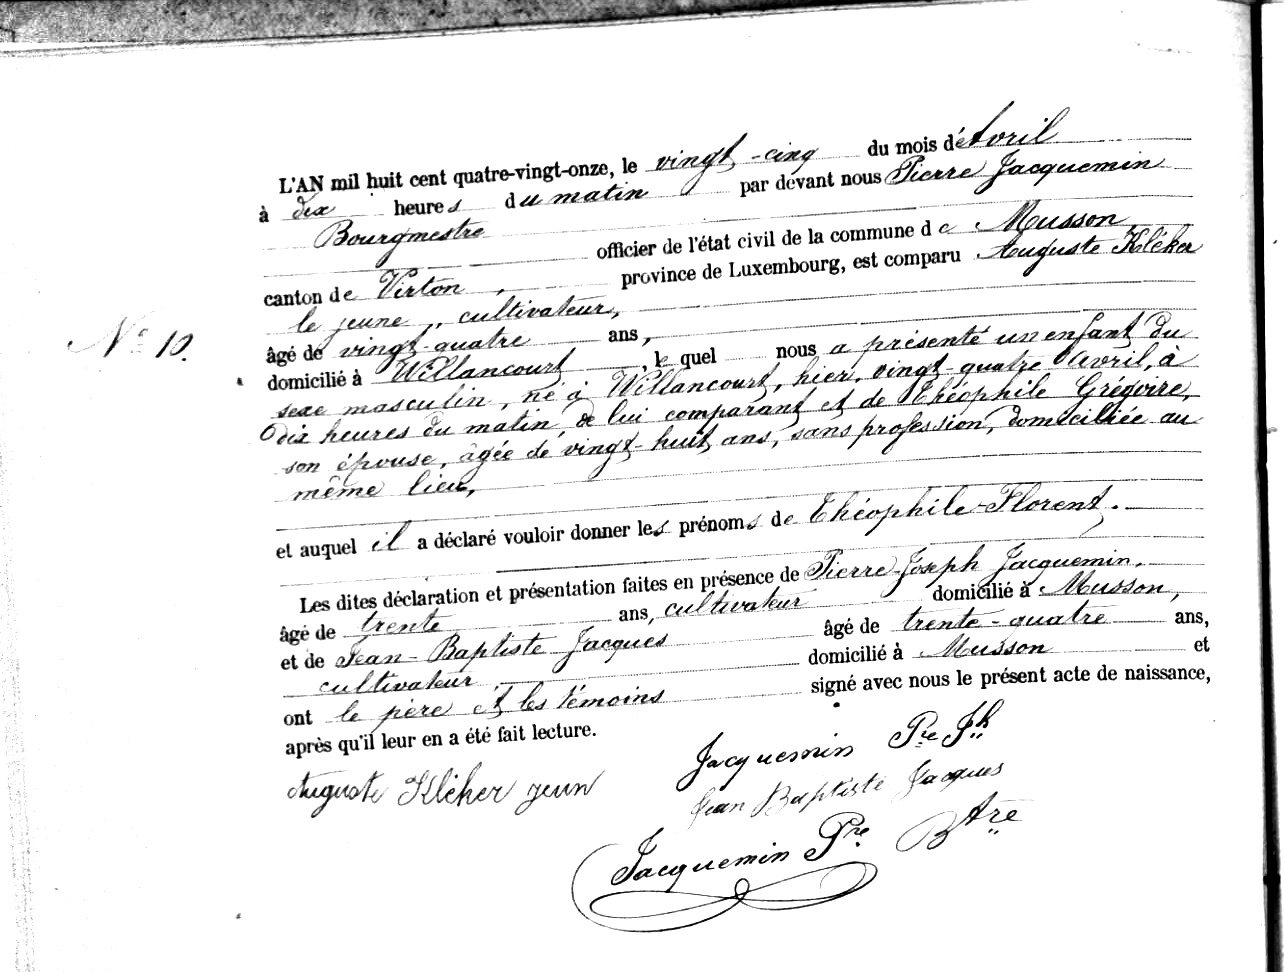 L'AN mil huit cent quatre-vingt-onze, le vingt-cinq du mois d'Avril
à dix heures du matin par devant nous Pierre Jacquemin
Bourgmestre officier de l'état civil de la commune de Musson
canton de Virton, province de Luxembourg, est comparu Auguste Kléher
le jeune, cultivateur,
âgé de vingt-quatre ans,
N° 10.
domicilié à Willancourt, lequel nous a présenté un enfant du
sexe masculin, né à Willancourt, hier, vingt-quatre avril, à
dix heures du matin, de lui comparant et de Théophile Grégoire,
son épouse, âgée de vingt-huit ans, sans profession, domiciliée au
même lieu,
et auquel il a déclaré vouloir donner les prénoms de Théophile-Florent.
Les dites déclaration et présentation faites en présence de Pierre-Joseph Jacquemin,
âgé de trente ans, cultivateur domicilié à Musson,
et de Jean-Baptiste Jacques âgé de trente-quatre ans,
cultivateur domicilié à Musson et
ont le père et les témoins signé avec nous le présent acte de naissance,
après qu'il leur en a été fait lecture.
Jacquemin Pre Jh
Auguste Kléher jeun
Jean Baptiste Jacques
Jacquemin Pre Btre